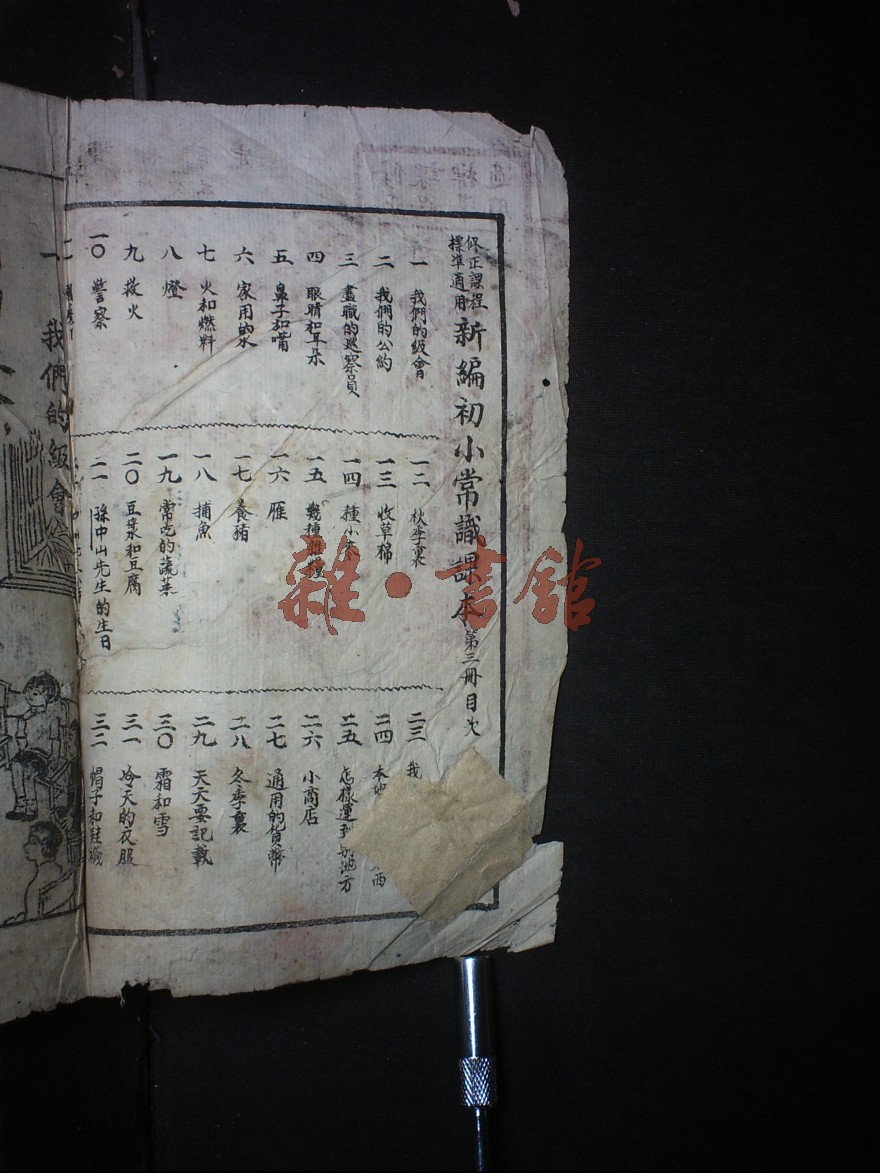 修正課程
標準適用
新編初小常識課本第三冊目次
一 我們的級會
二 我們的公約
三 盡職的巡察員
四 眼睛和耳朵
五 鼻子和嘴
六 家用的水
七 火和燃料
八 燈
九 救火
一〇 警察
一二 秋季裏
一三 收草棉
一四 種小麥
一五 幾種雜糧
一六 雁
一七 養豬
一八 捕魚
一九 常吃的蔬菜
二〇 豆漿和豆腐
二一 孫中山先生的生日
二三 我
二四 本地 西
二五 怎樣運到別地方
二六 小商店
二七 通用的貨幣
二八 冬季裏
二九 天天要記載
三〇 霜和雪
三一 冷天的衣服
三二 帽子和鞋襪
一 我們的級會
雜·書館